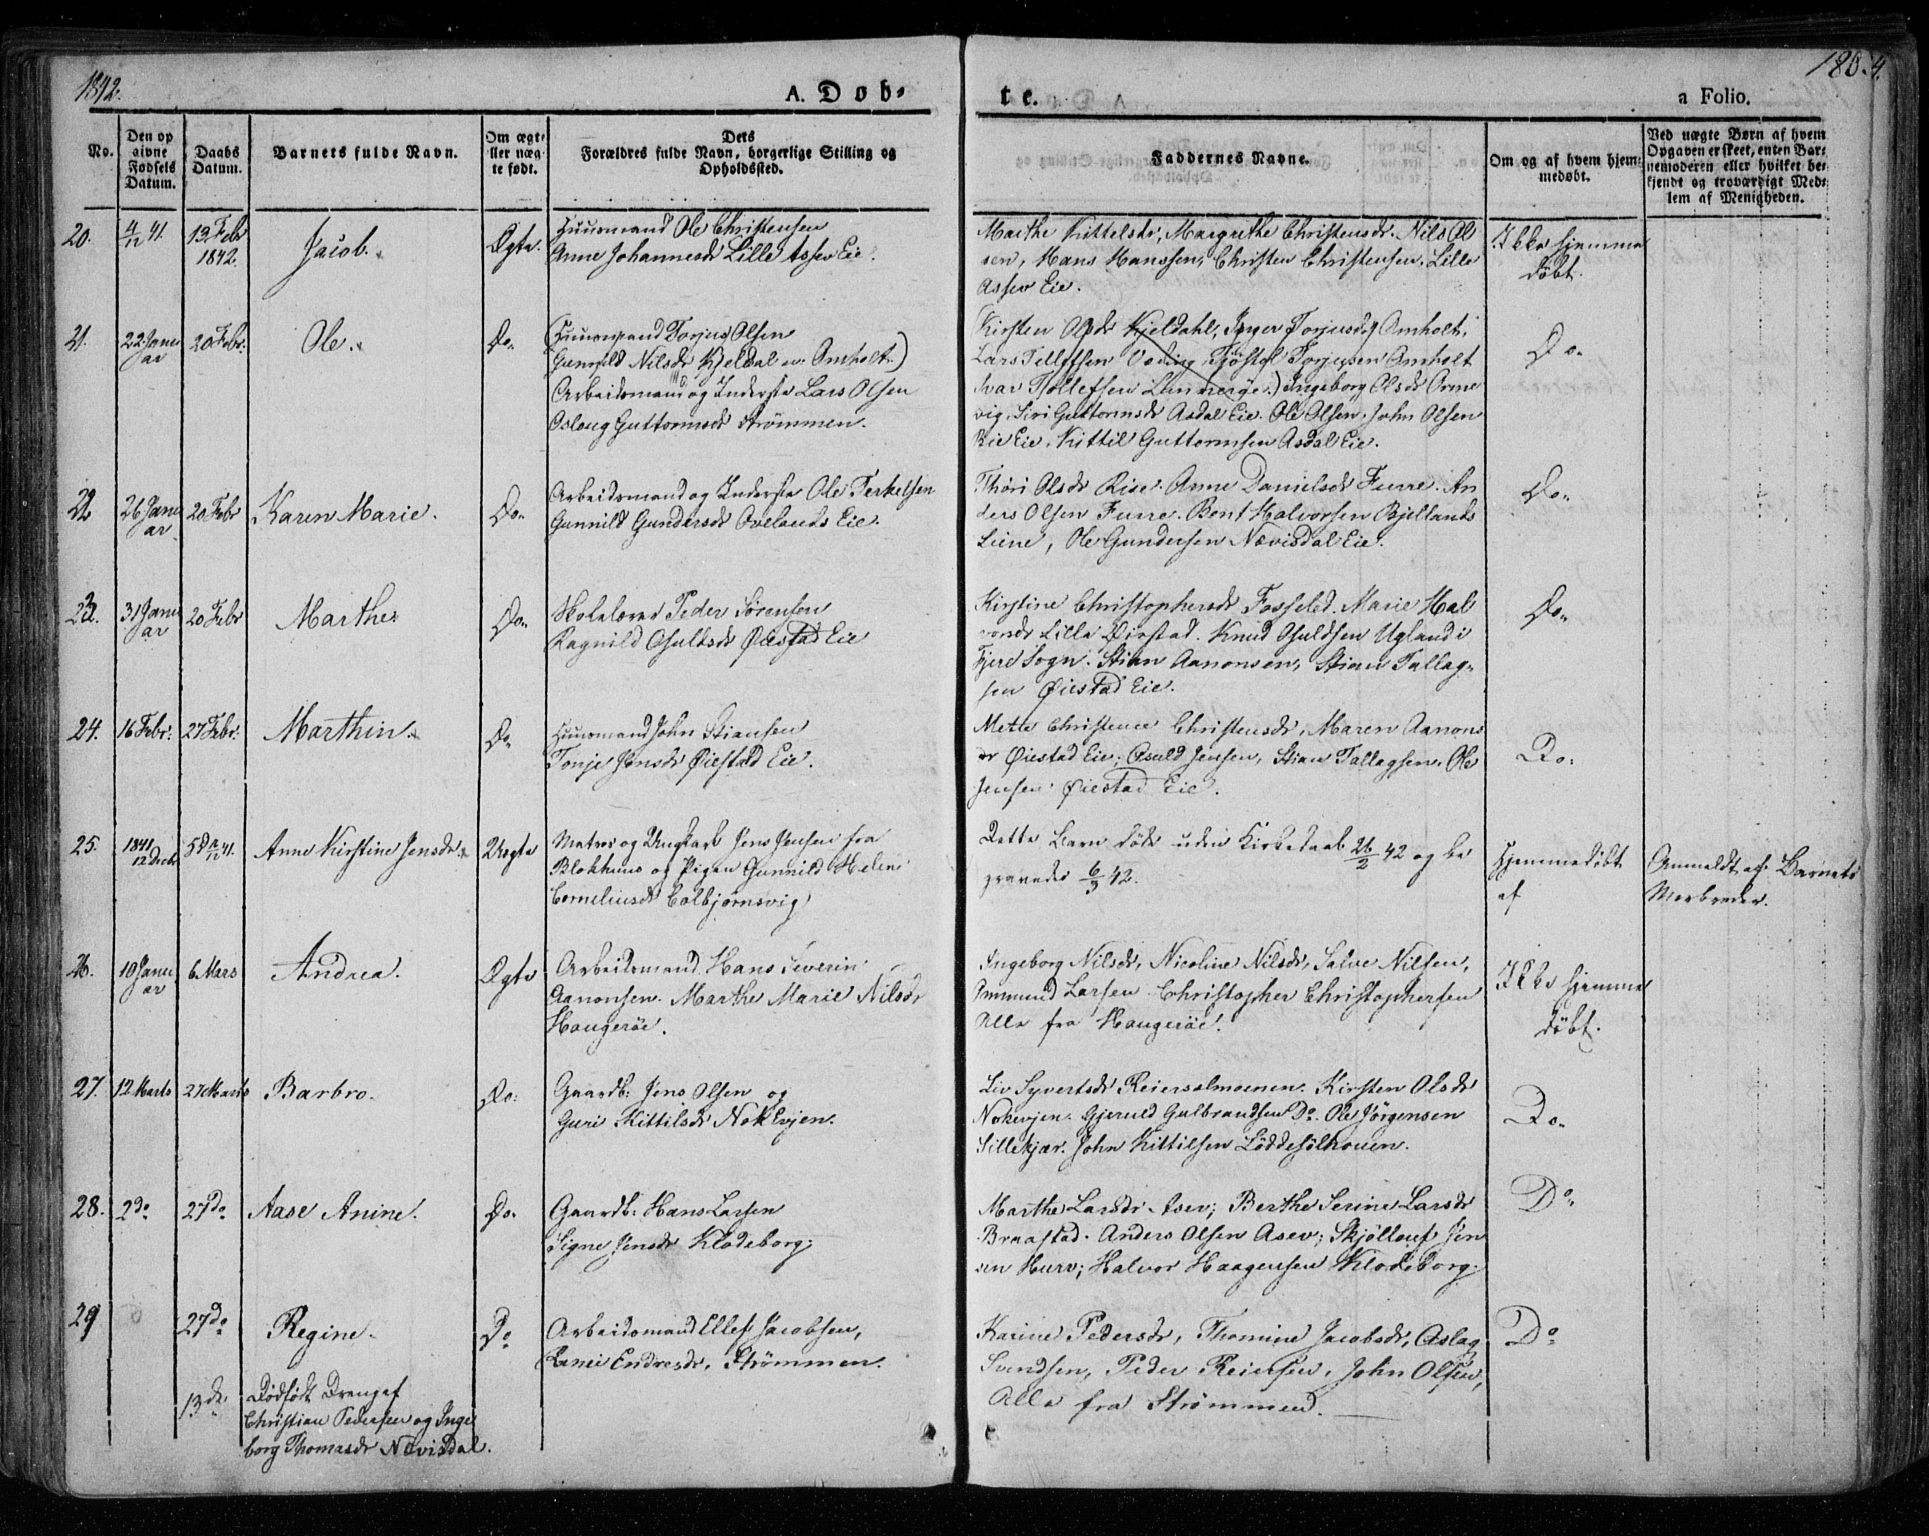 1842.
A. Dob-
te.
180. 4.
a Folio.
No.
Den op
givne
Fødsels
Datum.
Daabs
Datum.
Barnets fulde Navn.
Om ægt-
ller næg
te født.
Dets
Forældres fulde Navn, borgerlige Stilling og
Opholdssted.
Faddernes Navne.
Om og af hvem hjem-
medøbt.
Ved uægte Børn af hvem
Opgaven er skeet, enten Bar-
nemoderen eller hvilket be-
kjendt og troværdigt Med-
lem af Menigheden.
20.
4/12 41.
13 Febr
1842.
Jacob.
Ægte.
Huusmand Ole Christensen
Anne Johannesdr Lille Assev Eie.
Marthe Kittelsdr, Margrethe Christensdr. Nils Ol
sen, Hans Hanssen, Christen Christensen, Lille
Assev Eie.
Ikke hjemme
døbt.
21.
22 Janu
ar
20 Febr.
Ole.
Do.
Huusmand Torjus Olsen
Gunnild Nilsdr Kjeldal n. Omholt.)
Arbeidsmand og Inderste Lars Olsen
Oslaug Guttormsdr Strømmen.
Kirsten Olsdr Kjeldahl, Inger Torjusdr Omholt,
Lars Tellefsen Tjøstel Torjusen Omholt
Ivar Tollefsen Lunnerøe.) Ingeborg Olsdr Orme
vig. Siri Guttormsdr Asdal Eie. Ole Olsen, John Olsen
Bie Eie. Kittil Guttormsen Asdal Eie.
Do.
22
26 Janu
ar
20 Febr
Karen Marie.
Do.
Arbeidsmand og Inderste Ole Terkelsen
Gunnild Gundersdr Ovelands Eie.
Thóri Olsdr Rise. Anne Danielsdr Furre. An
ders Olsen Furre. Bent Halvorsen Bjellands
Leine, Ole Gundersen Nævisdal Eie.
Do.
23.
31 Janu
ar
20 Febr
Marthe
Do.
Skolelærer Peder Sørensen
Ragnild Osulsdr Øiestad Eie
Kirstine Christophersdr Fosseled. Marie Hal
vorsdr Lille Øiestad. Knud Osuldsen Ugland i
Fjere Sogn. Stian Aanonsen, Stian Tallag-
sen Øiestad Eie.
Do.
24.
16 Febr.
27 Febr.
Marthin.
Do
Huusmand John Stiansen
Tonje Jensdr Øiestad Eie.
Mette Christence Christensdr, Maren Aanons
dr Øiestad Eie; Osuld Jensen, Stian Tallagsen. Ole
Jensen Øiestad Eie.
Do.
25.
1841
12 Decb.
41.
Anne Kirstine Jensdr.
Uægte
Matros og Ungkarl Jens Jensen fra
Blokhuus og Pigen Gunnild Helene
Corneliusdr Colbjørnsvig
Dette Barn døde uden Kirkedaab 26/2 42 og be
gravedes 6/3 42.
Hjemmedøbt
af
Anmeldt af Barnets
Morbroder.
26.
10 Janu
ar
6 Mars
Andrea.
Ægte
Arbeidsmand Hans Severin
Aanonsen. Marthe Marie Nilsdr
Haugerøe.
Ingeborg Nilsdr, Nicoline Nilsdr, Salve Nilsen,
Ommund Larsen. Christopher Christophersen
Alle fra Haugerøe.
Ikke hjemme
døbt.
27.
12 Marts
27 Marts
Barbro.
Do.
Gaardb: Jens Olsen og
Guri Kittilsdr Nokevjen.
Liv Syvertsdr Reiersølmoenen. Kirsten Olsdr
Nokevjen. Gjeruld Gulbrandsen Do. Ole Jørgensen
Sillekjær. John Kittilsen Løddesølhouen.
Do.
28.
2 do
27 do
Aase Anine.
Do.
Gaardb: Hans Larsen
Signe Jensdr Klodeborg.
Marthe Larsdr Asev; Berthe Serine Larsdr
Braastad. Anders Olsen Asev; Skjøllouf Jen
sen Hurv; Halvor Haagensen Klodeborg.
Do.
29
27 do
Regine.
Do
Arbeidsmand Ellef Jacobsen,
Endresdr, Strømmen.
Karine Pedersdr, Thomine Jacobsdr, Aslag
Svendsen, Peder Reiersen, John Olsen,
Alle fra Strømmen.
Do
13 do.
Dødfødt Dreng af
Christian Pedersen og Inge
borg Thomasdr Nævisdal.